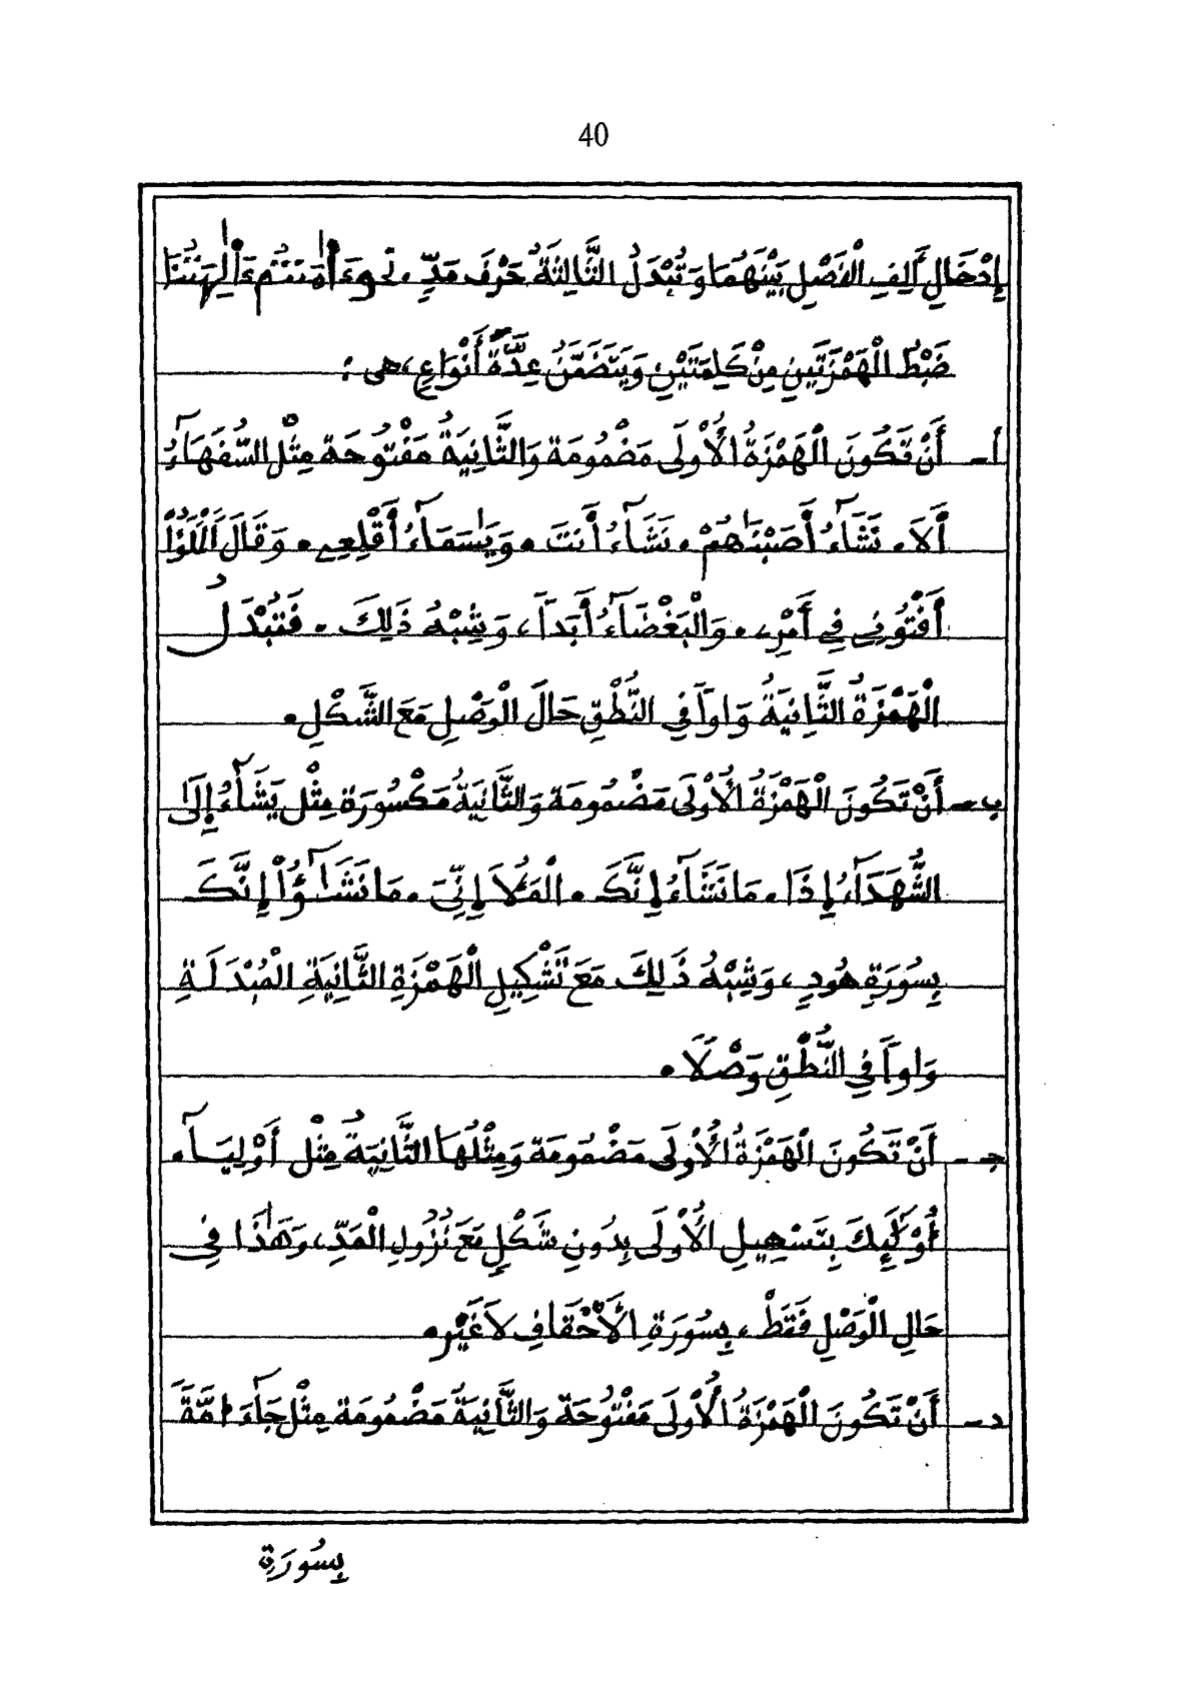 40
إِدْخَالِ أَلِفِ الْفَصْلِ بَيْنَهُمَا وَتُبْدَلُ الثَّالِثَةُ حَرْفَ مَدٍّ، نحو ءَأَٰمَنتُم ءَأَٰلِهَتُنَا
ضَبْطُ الْهَمْزَتَيْنِ مِنْ كَلِمَتَيْنِ وَيَتَضَمَّنُ عِدَّةَ أَنْوَاعٍ، هى :
أ - أَنْ تَكُونَ الْهَمْزَةُ الْأُوْلَى مَضْمُومَة وَالثَّانِيَةُ مَفْتُوحَة مِثْل السُّفَهَآءُ
أَلاَ . نَشَآءُ أَصَبْنَٰهُمْ . نَشَآءُ أَنتَ . وَيَٰسَمَآءُ أَقْلِعِے . وَقَالَ الْمَلَؤُاْ
أَفْتُونِي فِي أَمْرِے . وَالْبَغْضَآءُ أَبَداً ، وَشِبْهُ ذَلِكَ . فَتُبْدَلُ
الْهَمْزَةُ الثَّانِيَةُ وَاواً فِي النُّطْقِ حَالَ الْوَصْلِ مَعَ الشَّكْلِ .
ب - أَنْ تَكُونَ الْهَمْزَةُ الْأُوْلَى مَضْمُومَة وَالثَّانِيَةُ مَكْسُورَة مِثْل يَشَآءُ إِلَىٰ
الشُّهَدَآءُ إِذَا . مَا نَشَآءُ إِنَّكَ . الْمَلَأُ إِنِّيَ . مَا نَشَٰٓؤُاْ إِنَّكَ
بِسُورَةِ هُودٍ ، وَشِبْهُ ذَلِكَ مَعَ تَشْكِيلِ الْهَمْزَةِ الثَّانِيَةِ الْمُبْدَلَةِ
وَاواً فِي النُّطْقِ وَصْلاً .
جـ - أَنْ تَكُونَ الْهَمْزَةُ الْأُوْلَى مَضْمُومَة وَمِثْلُهَا الثَّانِيَةُ مِثْل أَوْلِيَآءُ
أُوْلَٰٓئِكَ بِتَسْهِيلِ الْأُوْلَى بِدُونِ شَكْلٍ مَعَ نُزُولِ الْمَدِّ، وَهَٰذَا فِي
حَالِ الْوَصْلِ فَقَطْ ، بِسُورَةِ الْأَحْقَافِ لاَ غَيْر .
د - أَنْ تَكُونَ الْهَمْزَةُ الْأُوْلَى مَفْتُوحَة وَالثَّانِيَةُ مَضْمُومَة مِثْل جَآءَ امَّةً
بِسُورَةِ